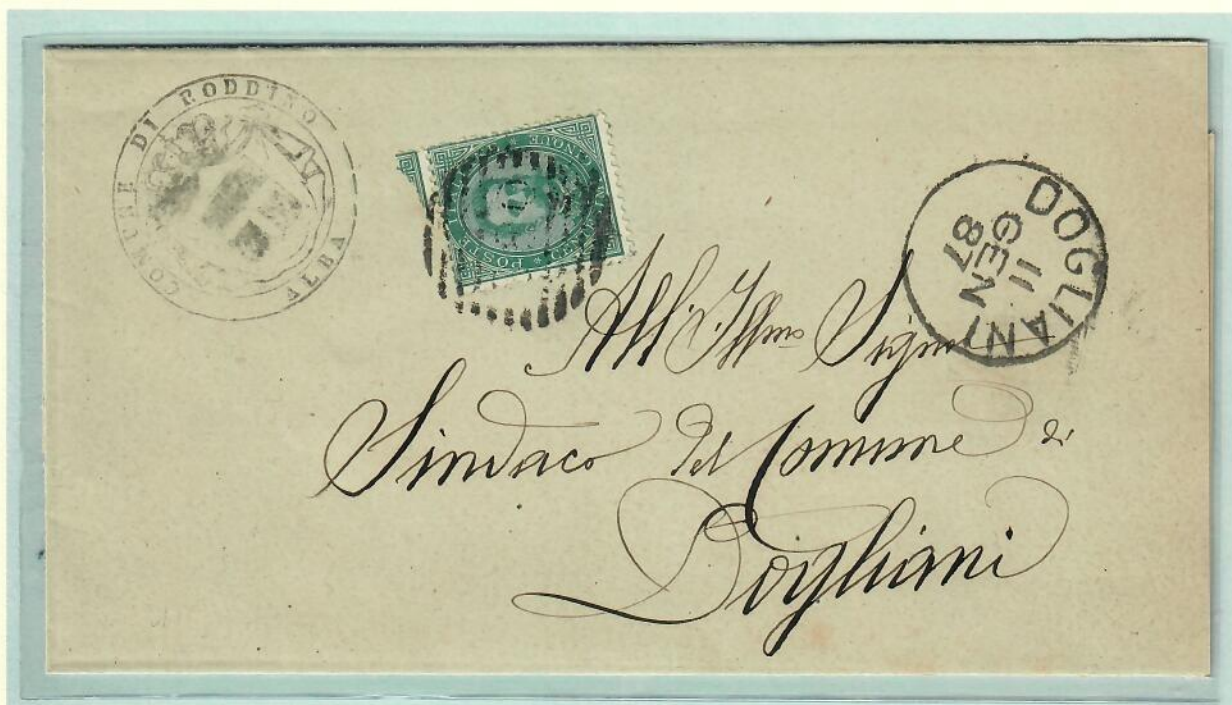 COMUNE DI RODDINO
ALBA
CINQUE
POSTE
DOGLIANI
11
GEN
87
All'Illmo Signor
Sindaco del Comune di
Dogliani